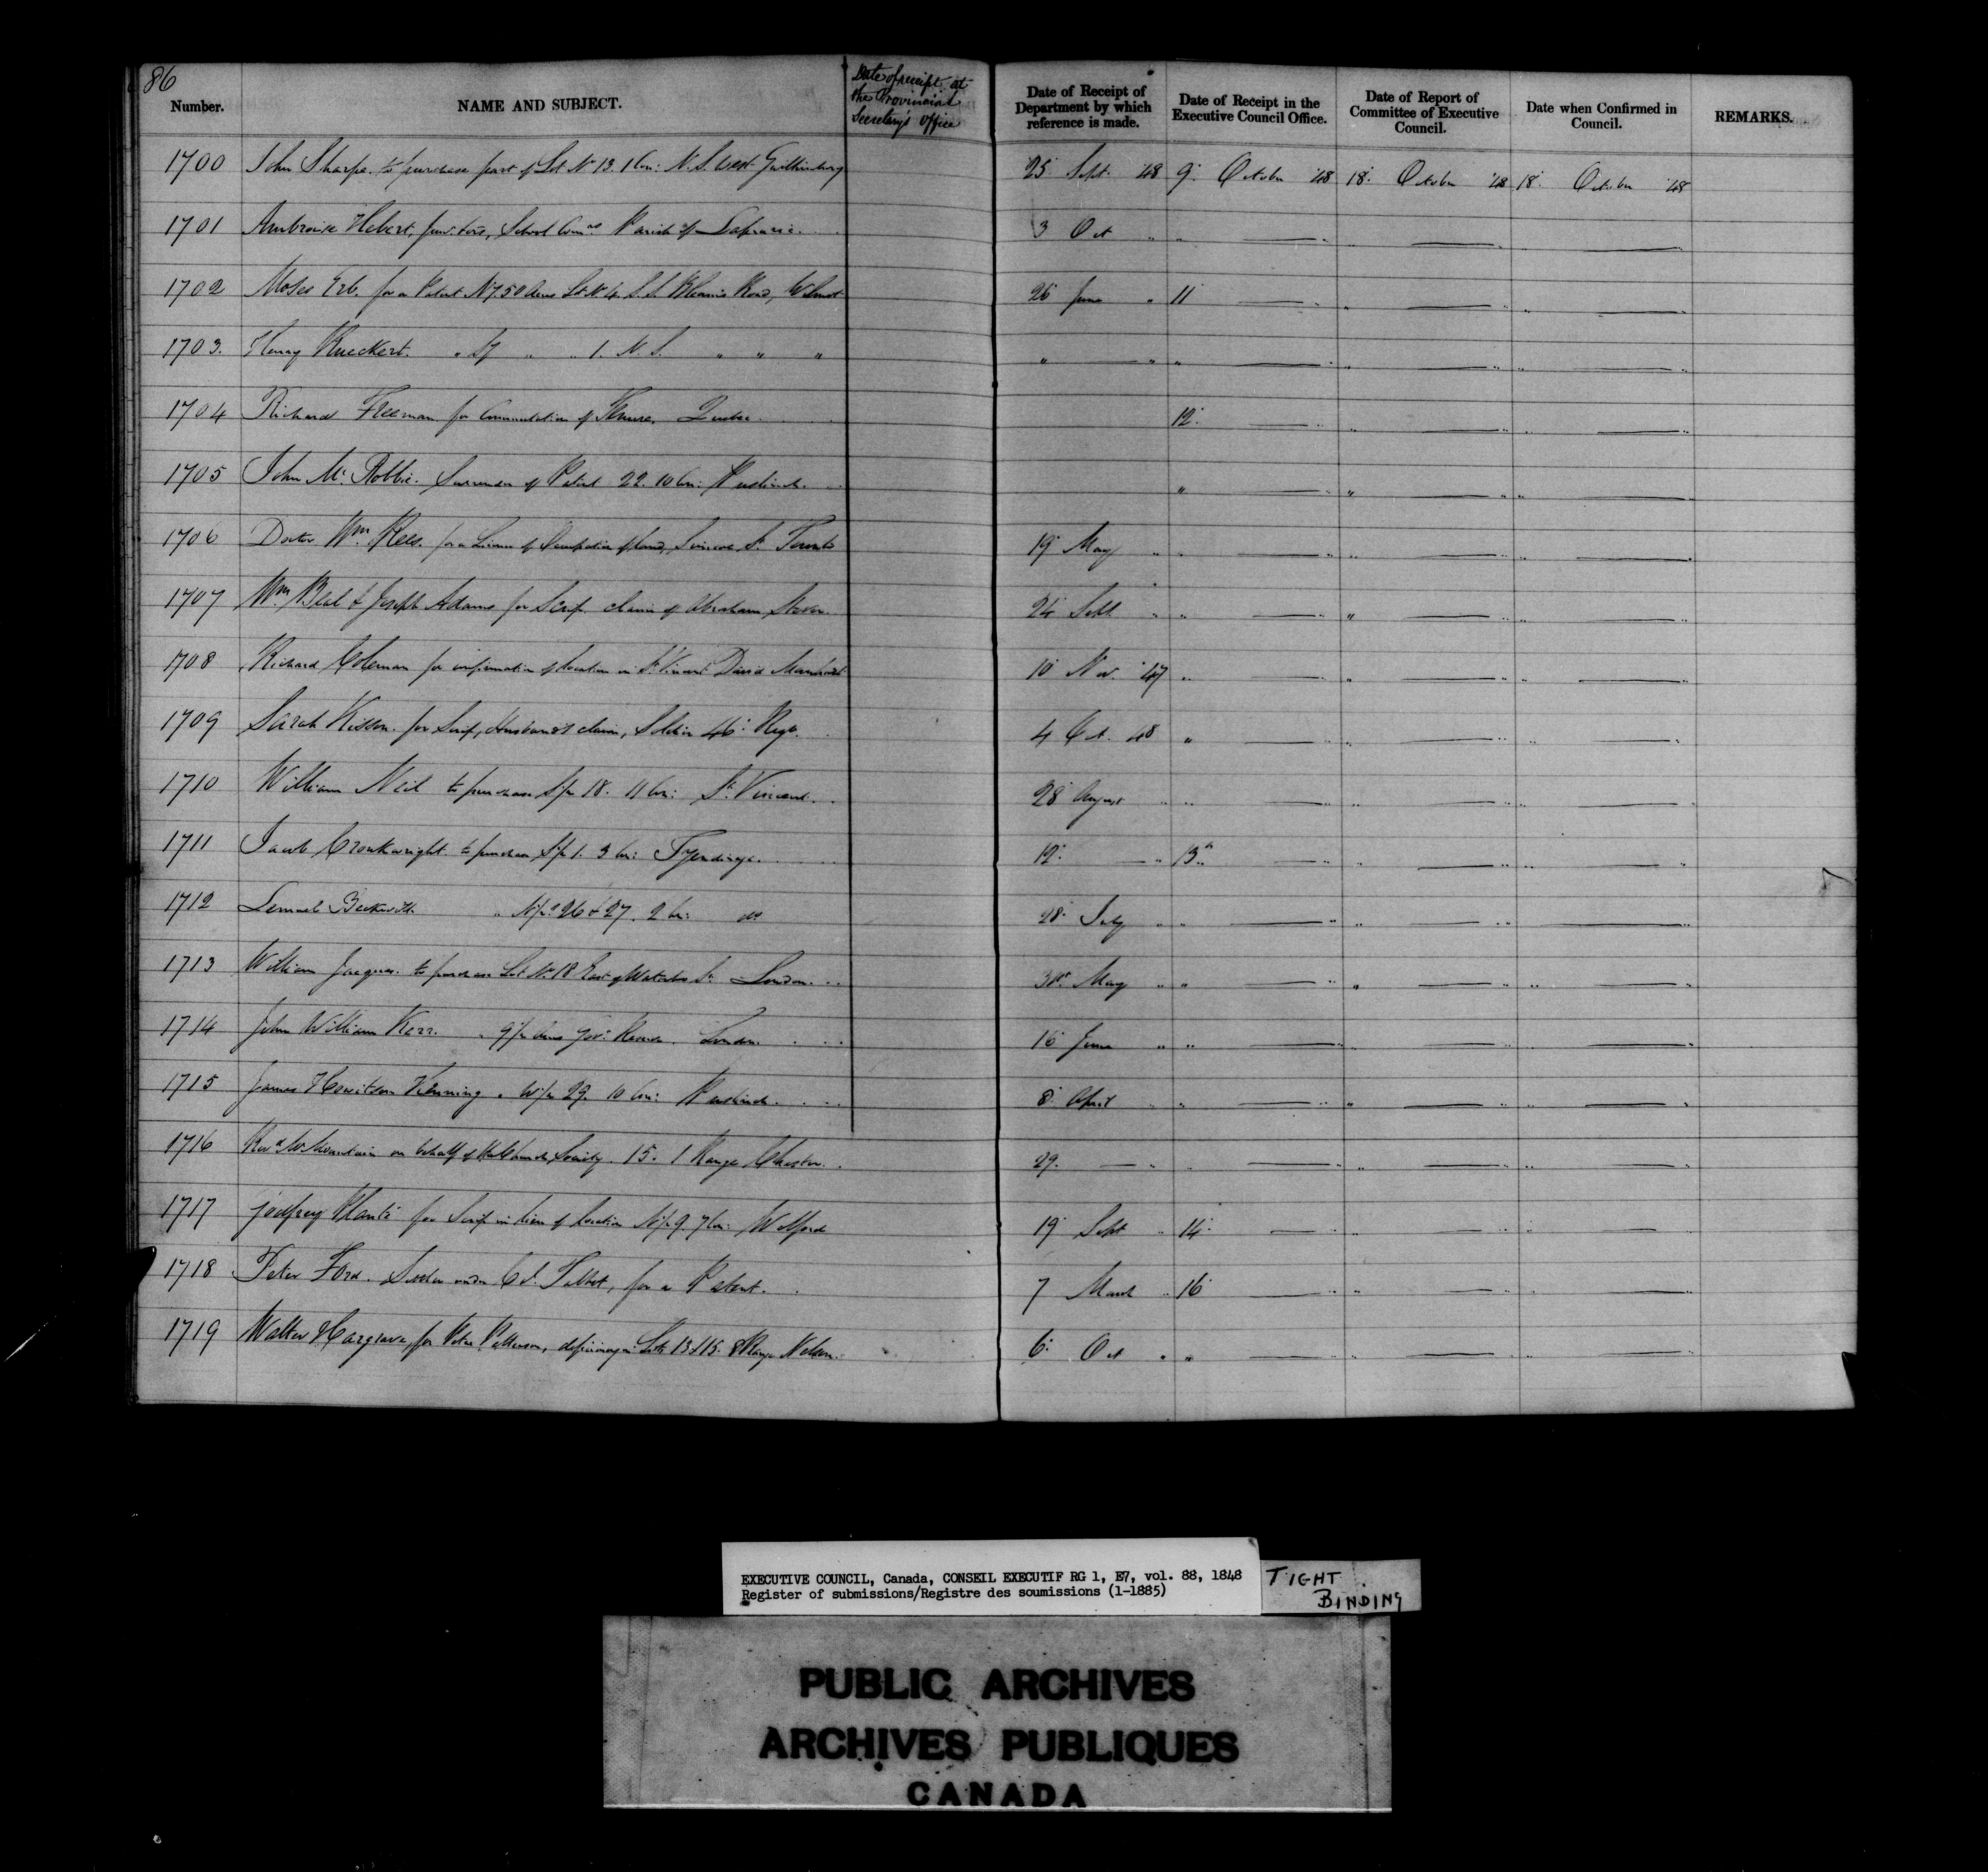 86
Number. NAME AND SUBJECT. Date of receipt at the Provincial Secretary's Office Date of Receipt of Department by which reference is made. Date of Receipt in the Executive Council Office. Date of Report of Committee of Executive Council. Date when Confirmed in Council. REMARKS.
1700 John Sharpe. to purchase part of Lot No 13. 1 Con: N. S. West Gwillimbury 25 Sept. 48 9 October 48 18 October 48 18 October 48
1701 Ambroise Hebert, School Parish of Laprairie 3 Oct " " — " " — " " — "
1702 Moses Erb. for a Patent 50 Acres Lot No 4. S. S. Road, Wilmot 26 June " 11 — " " — " " — "
1703. Henry Rueckert. " " " 1. N. S. " " " " — " " — " " — " " — "
1704 Richard Freeman for Commutation of Tenure. Quebec 12 — " " — " " — "
1705 John Mc Robbie. Surrender of Patent 22. 10 Con: Puslinch. " — " " — " " — "
1706 Doctor Wm Rees. for a License of Occupation of land, Simcoe St. Toronto 19 May " " — " " — " " — "
1707 Wm Beal & Joseph Adams for Scrip claim of Abraham 24 Sept " " — " " — " " — "
1708 Richard Coleman for confirmation of location in St Vincent David 10 Nov. 47 " — " " — " " — "
1709 Sarah for Scrip, Husband's claim, Soldier 46 Regt. 4 Oct. 48 " — " " — " " — "
1710 William Neil to purchase S/½ 18. 11 Con: St. Vincent. 28 August " " — " " — " " — "
1711 Jacob Cronkwright to purchase S/½ 1. 3 Con: Tyendinaga. 12 — " 13 — " " — " " — "
1712 Lemuel Beckwith " N/½s 26 & 27. 2 Con: do 28 July " " — " " — " " — "
1713 William Jacques. to purchase Lot No 18 East of Waterloo St. London. May " " — " " — " " — "
1714 John William Kerr. " Acres Govt Reserve. London. 16 June " " — " " — " " — "
1715 James Howitson Kenning " W/½ 29. 10 Con: Puslinch. 8 April " " — " " — " " — "
1716 Revd W Mountain on behalf of the Church Society. 15. 1 Range Chester. 29. — " " — " " — " " — "
1717 Godfrey Planté for Scrip in lieu of location N/½ 9. 7 Con: Wolford 19 Sept " 14 — " " — " " — "
1718 Peter Ford. Settler under Col. Talbot, for a Patent. 7 March " 16 — " " — " " — "
1719 Walter Hargrave, for Peter Patterson, Lots 13 & 15. 8 Range Nelson. 6 Oct " " — " " — " " — "
EXECUTIVE COUNCIL, Canada, CONSEIL EXECUTIF RG 1, E7, vol. 88, 1848
Register of submissions/Registre des soumissions (1-1885)
TIGHT
BINDING
PUBLIC ARCHIVES
ARCHIVES PUBLIQUES
CANADA